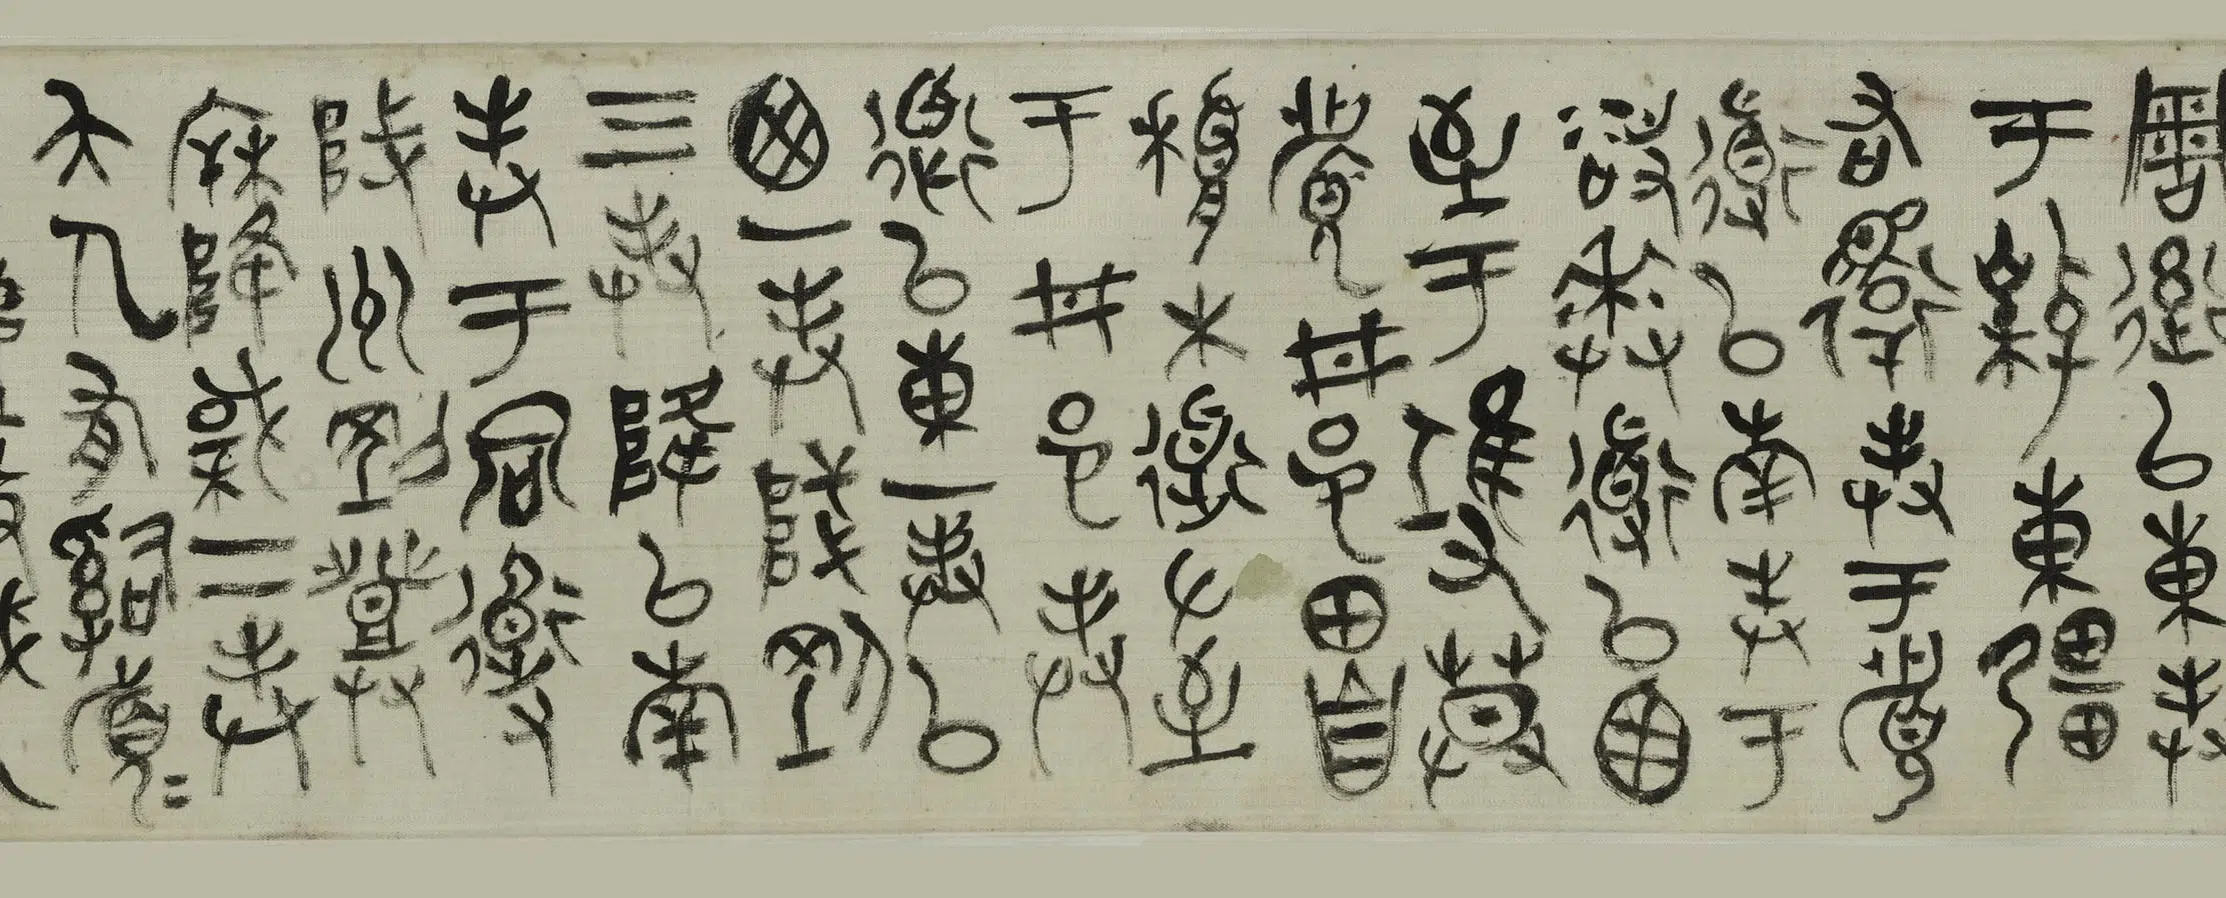 周道以東封
于東疆
右還封于眉
道以南封于
道以西
至于莫
眉井邑田自
木道左至
于井邑封
道以東一封以
西一封陟剛
三封降以南
封于同道
陟州剛登
降棫二封
夨人有𤔲眉